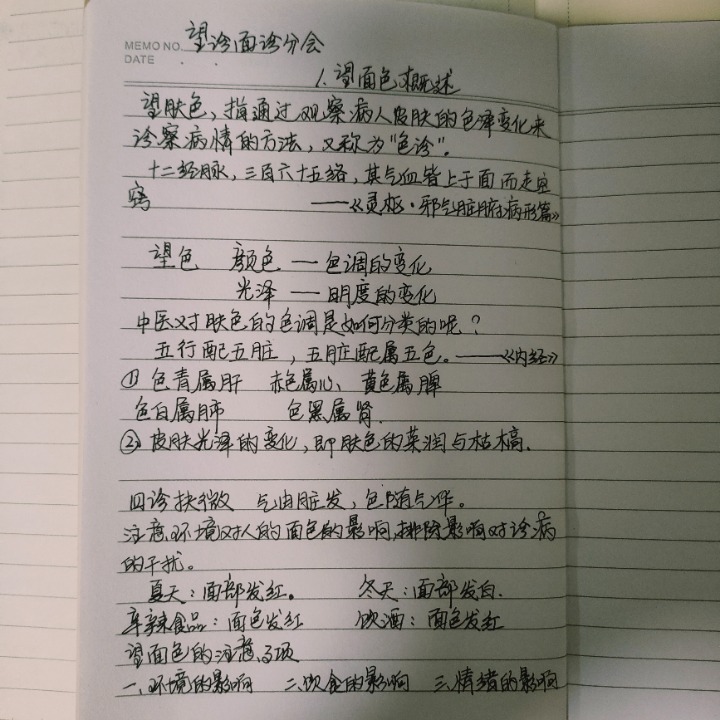 望诊面诊分会
MEMO NO.
DATE
1.望面色概述
望肤色，指通过观察病人皮肤的色泽变化来
诊察病情的方法，又称为"色诊"。
十二经脉，三百六十五络，其气血皆上于面而走空
窍 ——《灵枢·邪气脏腑病形篇》
望色 颜色 — 色调的变化
光泽 — 明度的变化
中医对肤色的色调是如何分类的呢？
五行配五脏，五脏配属五色。——《内经》
① 色青属肝 赤色属心 黄色属脾
色白属肺 色黑属肾.
② 皮肤光泽的变化，即肤色的荣润与枯槁.
四诊抉微 气由脏发，色随气华。
注意环境对人的面色的影响，排除影响对诊病
的干扰。
夏天：面部发红。 冬天：面部发白.
辛辣食品：面色发红 饮酒：面色发红
望面色的注意事项
一.环境的影响 二.饮食的影响 三.情绪的影响